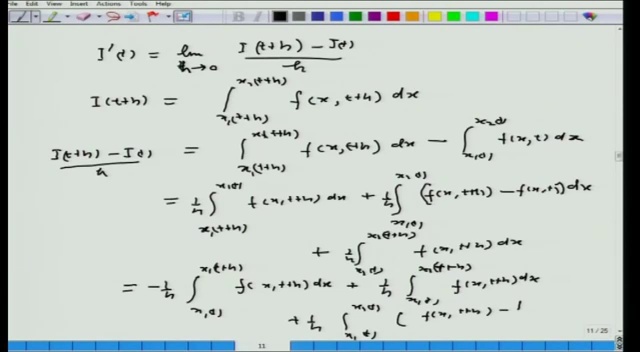 I'(t) = lim_{h→0} (I(t+h) − I(t))/h
I(t+h) = ∫_{x₁(t+h)}^{x₂(t+h)} f(x, t+h) dx
(I(t+h) − I(t))/h = ∫_{x₁(t+h)}^{x₂(t+h)} f(x, t+h) dx − ∫_{x₁(t)}^{x₂(t)} f(x, t) dx
= 1/h ∫_{x₁(t+h)}^{x₁(t)} f(x, t+h) dx + 1/h ∫_{x₁(t)}^{x₂(t)} (f(x, t+h) − f(x, t)) dx
+ 1/h ∫_{x₂(t)}^{x₂(t+h)} f(x, t+h) dx
= −1/h ∫_{x₁(t)}^{x₁(t+h)} f(x, t+h) dx + 1/h ∫_{x₂(t)}^{x₂(t+h)} f(x, t+h) dx
+ 1/h ∫_{x₁(t)}^{x₂(t)} ( f(x, t+h) −
11 / 25
11